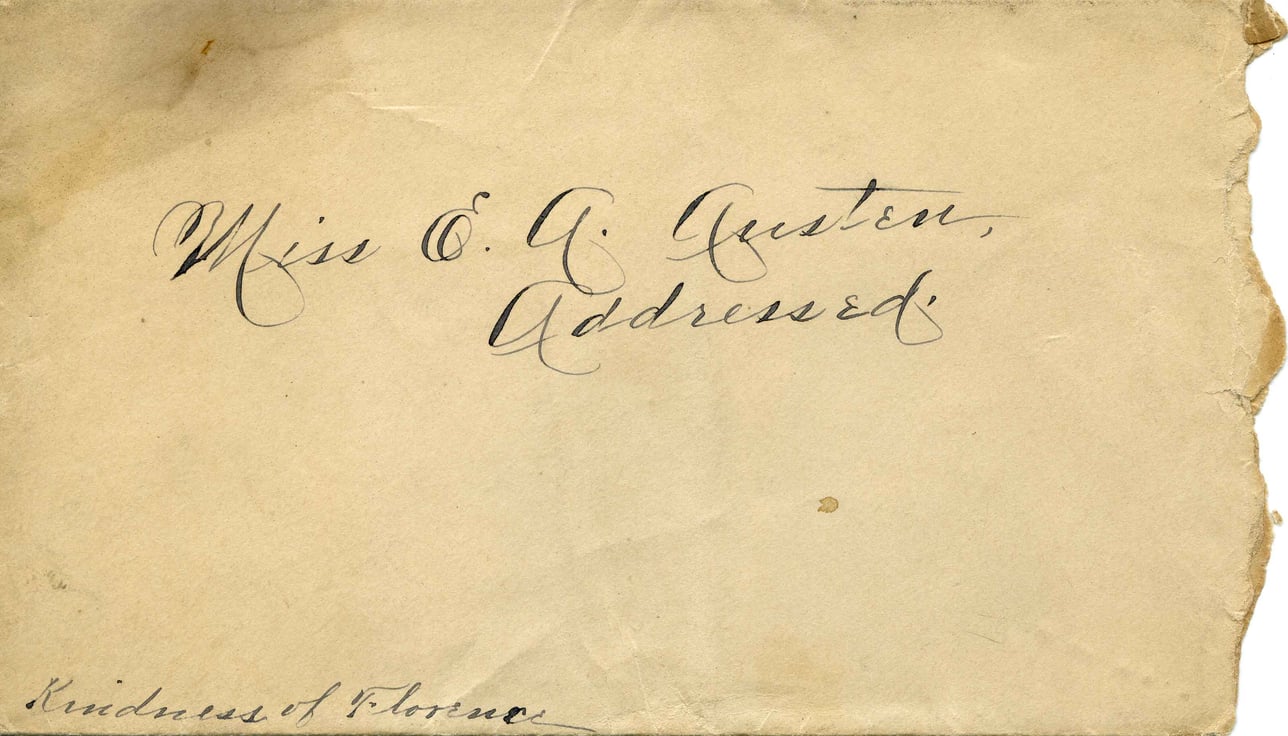 Miss E. A. Austen,
Addressed.
Kindness of Florence